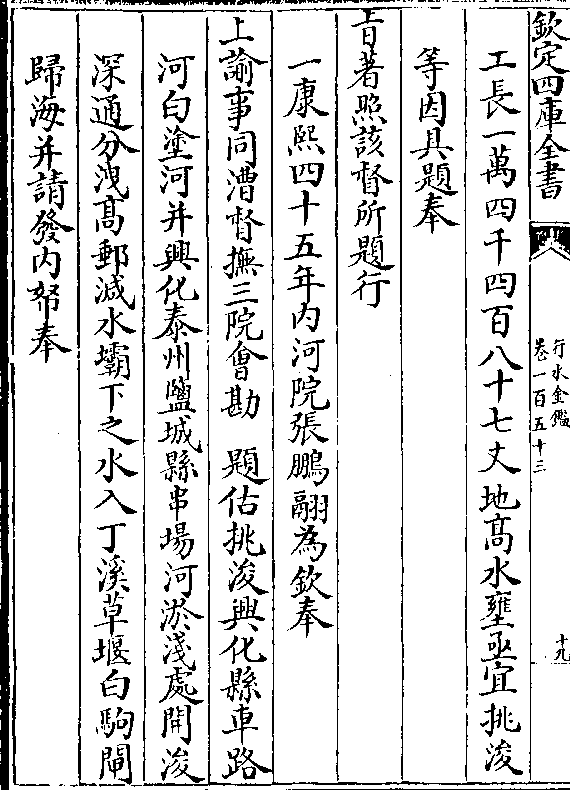 欽定四庫全書
行水金鑑
卷一百五十三
十九
工長一萬四千四百八十七丈地髙水壅亟宜挑浚
等因具題奉
㫖著照該督所題行
一康熙四十五年内河院張鵬翮為欽奉
上諭事同漕督撫三院㑹勘　題估挑浚興化縣車路
河白塗河并興化泰州鹽城縣串場河淤淺處開浚
深通分洩髙郵減水壩下之水入丁溪草堰白駒閘
歸海并請發内帑奉